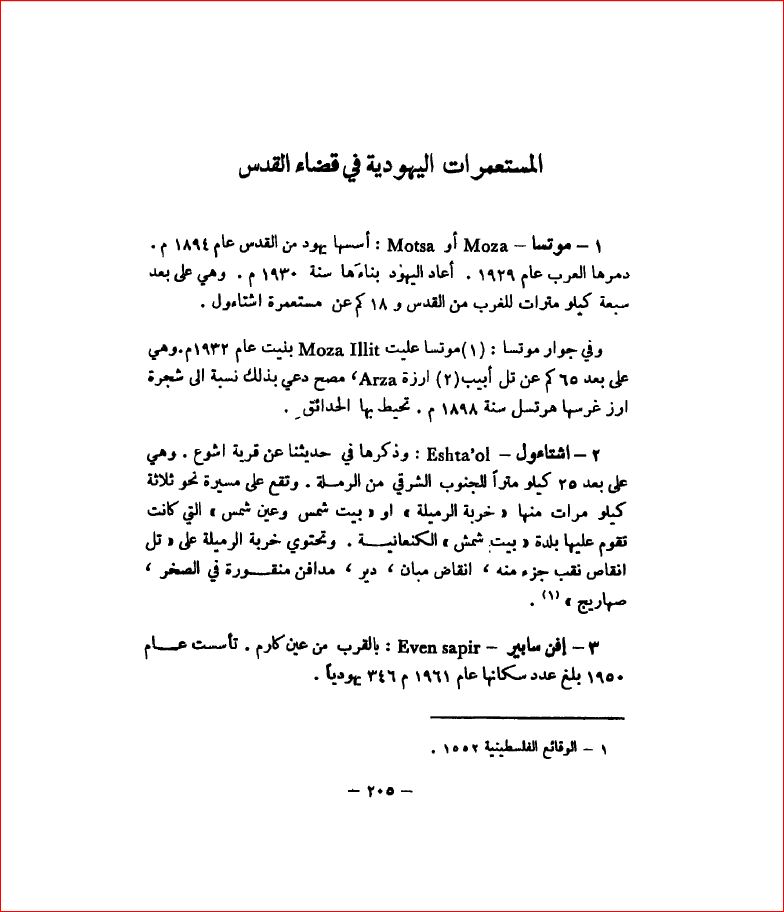 المستعمرات اليهودية في قضاء القدس
١ – موتسا – Moza أو Motsa : أسسها يهود من القدس عام ١٨٩٤ م .
دمرها العرب عام ١٩٢٩ . أعاد اليهود بناءَها سنة ١٩٣٠ م . وهي على بعد
سبعة كيلو مترات للغرب من القدس و ١٨ كم عن مستعمرة اشتاءول .
وفي جوار موتسا : (١)موتسا عليت Moza Illit بنيت عام ١٩٣٢م.وهي
على بعد ٦٥ كم عن تل أبيب(٢) ارزة Arza، مصح دعي بذلك نسبة الى شجرة
ارز غرسها هرتسل سنة ١٨٩٨ م . تحيط بها الحدائق .
٢ – اشتاءول – Eshta'ol : وذكرها في حديثنا عن قرية اشوع . وهي
على بعد ٢٥ كيلو متراً للجنوب الشرقي من الرملة . وتقع على مسيرة نحو ثلاثة
كيلو مرات منها « خربة الرميلة » او « بيت شمس وعين شمس » التي كانت
تقوم عليها بلدة « بيت شمش » الكنعانية . وتحتوي خربة الرميلة على « تل
انقاص نقب جزء منه ، انقاض مبان ، دير ، مدافن منقورة في الصخر ،
صهاريج » (١) .
٣ – إفن سابير – Even sapir : بالقرب من عين كارم . تأسست عام
١٩٥٠ بلغ عدد سكانها عام ١٩٦١ م ٣٤٦ يهودياً .
١ – الوقائع الفلسطينية ١٥٥٢ .
– ٢٠٥ –